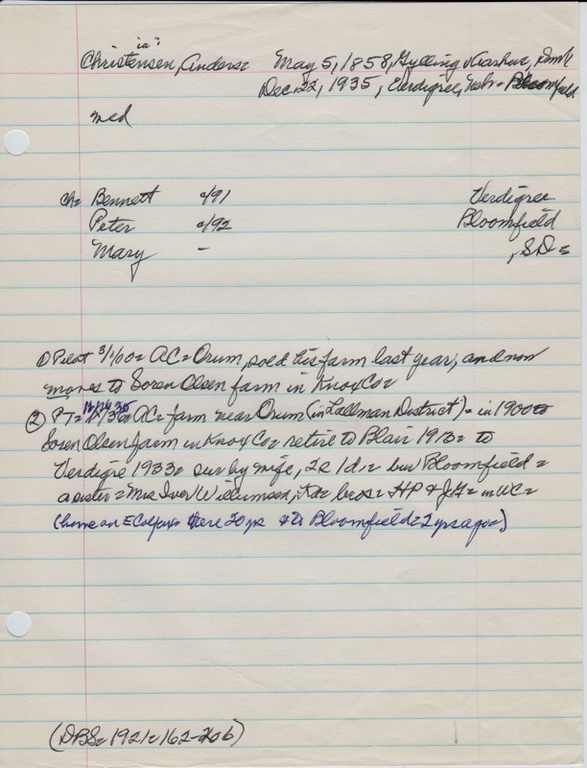 "ia"
Christensen, Anders= May 5, 1858, Gylling Aarhus, Dmk
Dec. 22, 1935, Verdigree, Neb = Bloomfield
md
ch= Bennett c/91 Verdigree
Peter c/92 Bloomfield
Mary - , SD =
① Pilot 3/1/00= AC= Orum, sold his farm last year, and now
moves to Soren Olsen farm in Knox Co=
② PT= 12/26 35 AC= farm near Orum (in Lallman District) = in 1900=
Soren Olsen farm in Knox Co= retire to Blair 1913= to
Verdigre 1933= sur by wife, 2s 1d= bur Bloomfield=
a sister= Mrs Iver Willumsen, = bros= HP & JH= in WC=
(home on E Colfax there 20 yrs & to Bloomfield= 2 yrs ago=)
(DBS= 1921= 162-206)